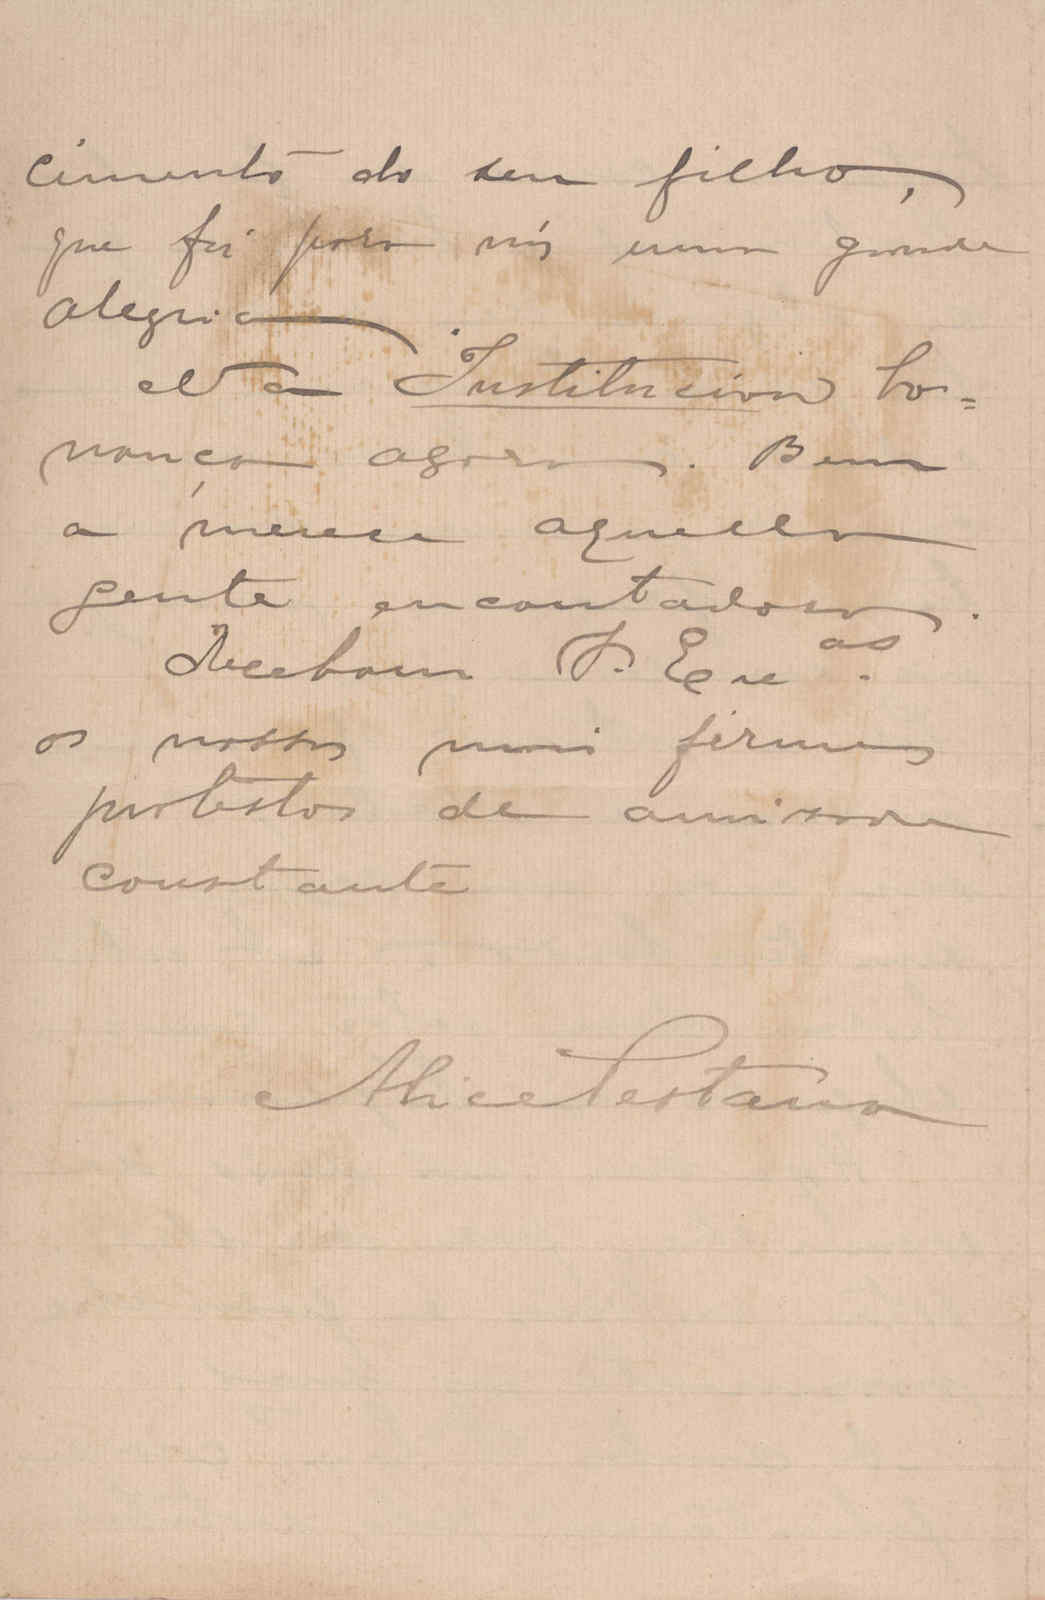 cimento do seu filho,
que foi para nós uma grande
alegria.
Na Institucion bo=
nança agora. Bem
a merece aquella
gente encantadora.
Recebam V. Exc.as
os nossos mais firmes
protestos de amisade
constante
Alice Pestana